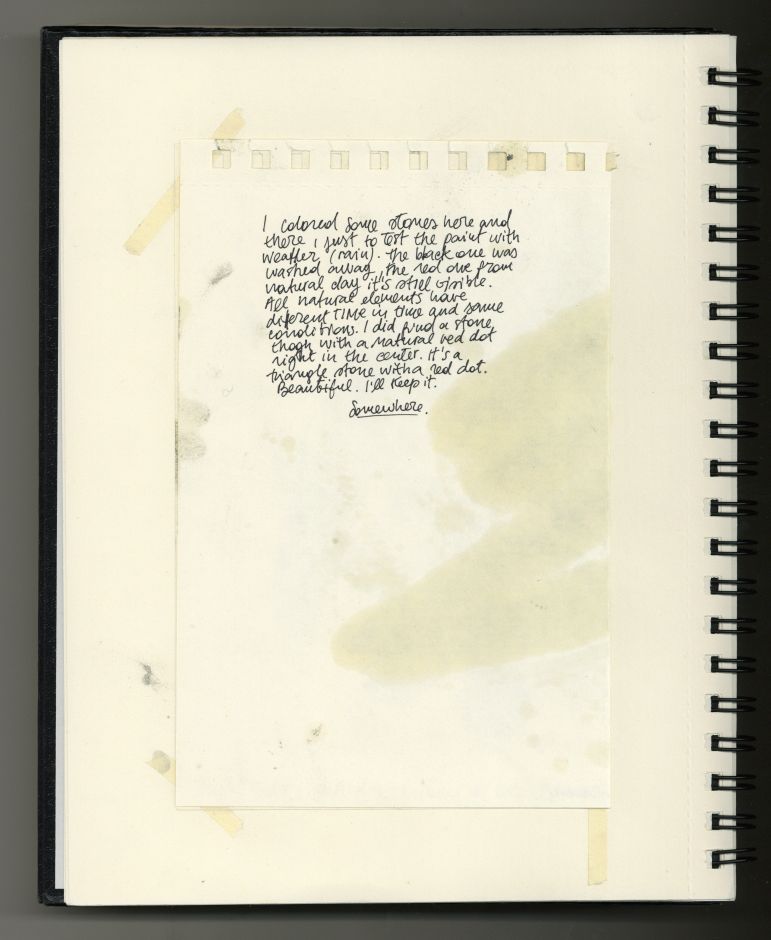 I colored some stones here and
there, just to test the paint with
weather (rain). The black one was
washed away, the red one from
natural clay it's still visible.
All natural elements have
diferent TIME in time and same
conditions. I did find a stone
thogh with a natural red dot
right in the center. It's a
triangle stone with a red dot.
Beautiful. I'll keep it.
Somewhere.